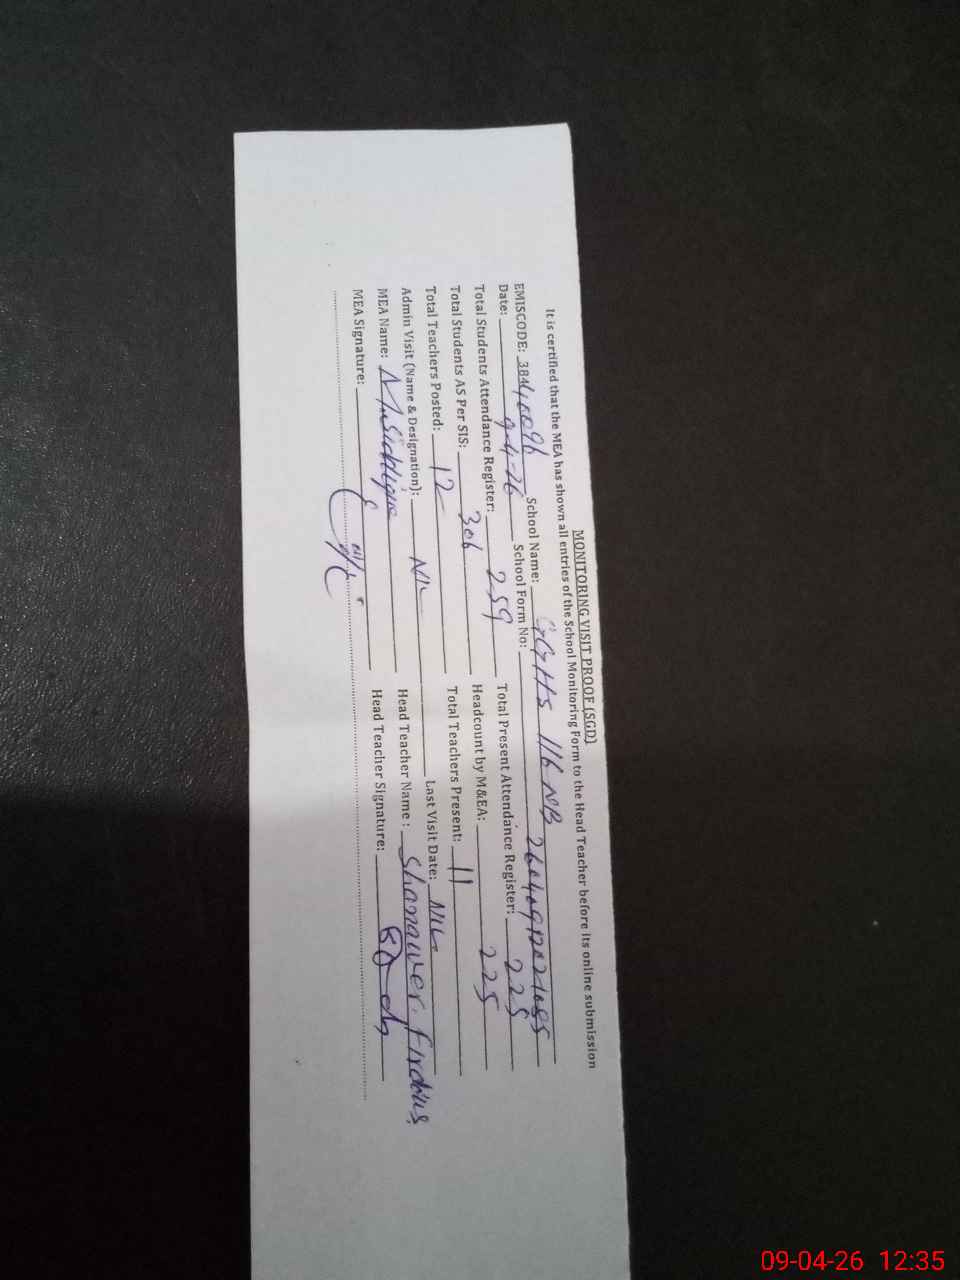 MONITORING VISIT PROOF (SGD)
It is certified that the MEA has shown all entries of the School Monitoring Form to the Head Teacher before its online submission
EMISCODE: 38440096 School Name: GGHS 116 NB
Date: 9-4-26 School Form No:
Total Students Attendance Register: 259 Total Present Attendance Register: 225
Total Students AS Per SIS: 306 Headcount by M&EA: 225
Total Teachers Posted: 12 Total Teachers Present: 11
Admin Visit (Name & Designation): NIL Last Visit Date: NIL
MEA Name: Head Teacher Name: Shanawer Firdous
MEA Signature: Head Teacher Signature:
09-04-26 12:35